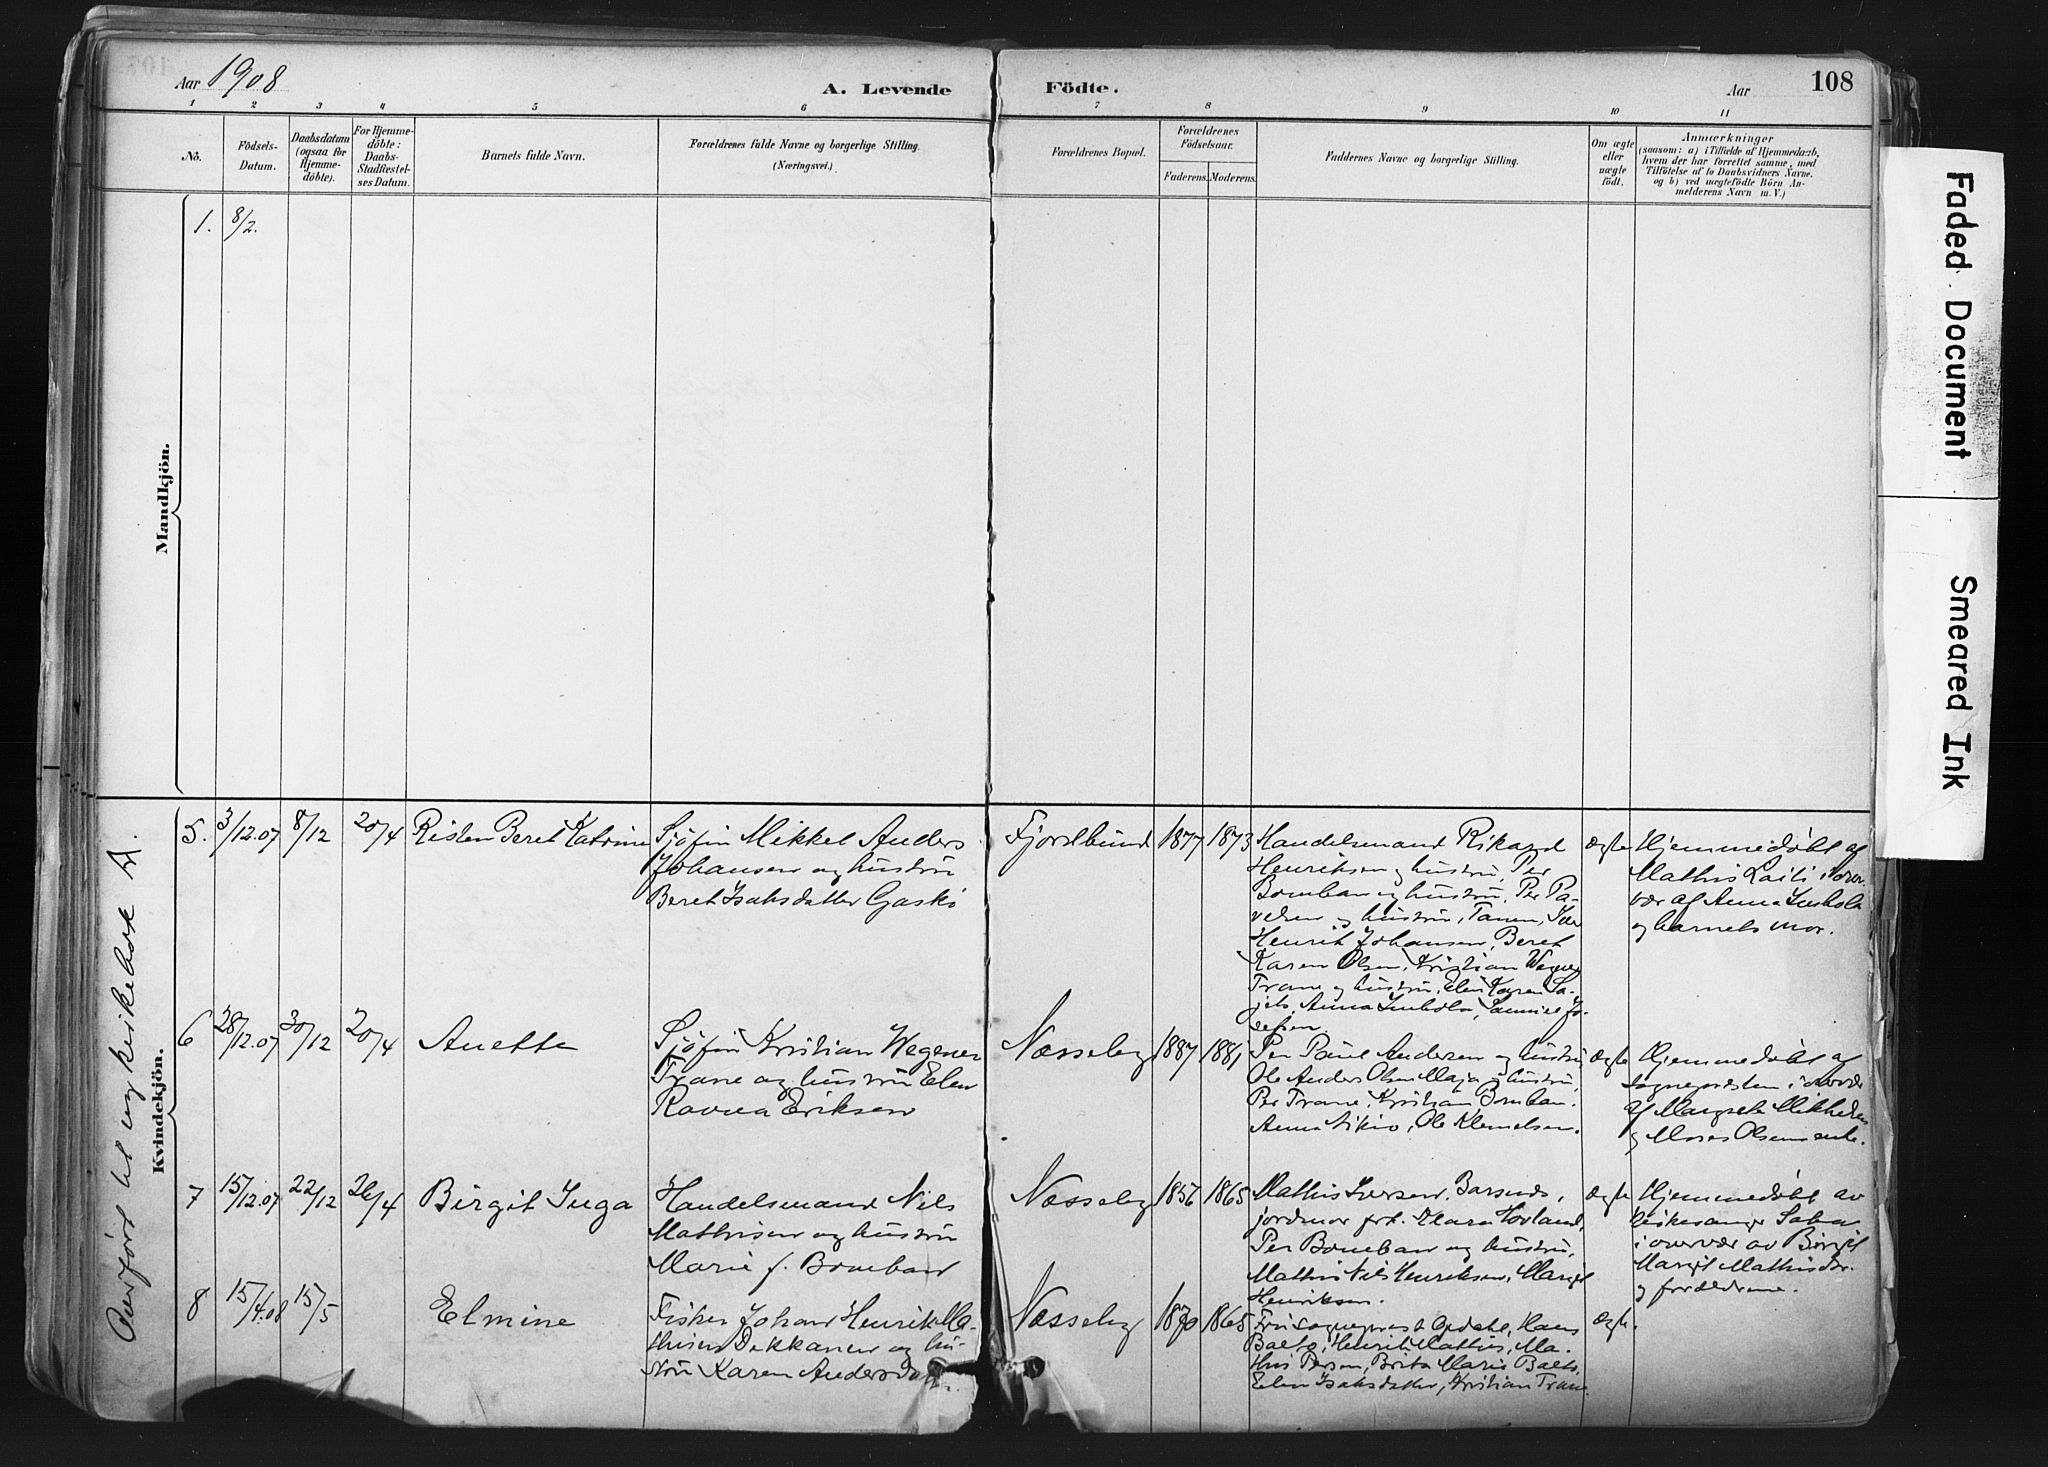 Aar 1908
A. Levende Födte.
Aar
108
1 2 3 4 5 6 7 8 9 10 11
No.
Födsels-
Datum.
Daabsdatum
(ogsaa for
Hjemme-
döbte).
For Hjemme-
döbte:
Daabs-
Stadfæstel-
ses Datum.
Barnets fulde Navn.
Forældrenes fulde Navne og borgerlige Stilling.
(Næringsvei.)
Forældrenes Bopæl.
Forældrenes
Födselsaar.
Faderens. Moderens.
Faddernes Navne og borgerlige Stilling.
Om ægte
eller
uægte
födt.
Anmærkninger
(saasom: a) i Tilfælde af Hjemmedaab,
hvem der har forrettet samme, med
Tilföielse af to Daabsvidners Navne.
og b) ved uægtefödte Börn An-
melderens Navn m. V.)
Mandkjön.
1. 8/2.
Kvindekjön.
Overført til ny kirkebok
5. 3/12.07 8/12 20/4
Risten Beret Katrine
Sjöfin Mikkel Anders
Johansen og hustru
Beret Isaksdatter Gaski
Fjordbund
1877 1873
Handelsmand Rikard
Henriksen og hustru, Per
Bomban og hustru, Per Pa-
velsen og hustru, Tanen, Iver
Henrik Johansen, Beret
Karen Olsen, Kristian Wegner
Trane og hustru, Elen Karen Sa-
jets, Anna
sefsen.
ægte
Hjemmedöbt af
Mathis Laiti i over-
vær af Anna
og barnets mor.
6 28/12.07 30/12 20/4
Anette
Sjöfin Kristian Wegener
Trane og hustru Elen
Ravna Eriksen
Næsseby
1887 1881
Per Paul Andersen og hustru
Ole Anders Olsen Maja og hustru,
Per Trane, Kristian Bomban.
Anna Nikiv, Ole Klemetsen.
ægte
Hjemmedöbt af
sognepresten i overvær
af Margrete Mikkelsen
og Moses Olsens enke.
7 15/12.07 22/12 26/4
Birgit Inga
Handelsmand Nils
Mathisen og hustru
Marie f. Bomban
Næsseby
1857 1865
Mathis Iversen, Barsnes,
jordmor frk. Klara Hovland,
Per Bomban og hustru,
Mathis Nils Henriksen, Margit
Henriksen.
ægte
Hjemmedöbt av
kirkesanger Saba
i overvær av Birgit
Margit Mathisdtr.
og forældrene.
8 15/4.08 15/5
Elmine
Fisker Johan Henrik Mat-
hisen Dikkanen og hu-
stru Karen Andersdatter.
Næsseby
1870 1865
Fru sogneprest Opdahl, Hans
Balto, Henrik Mathis, Ma-
this Persen, Brita Marie Balto,
Elen Isaksdatter, Kristian Trane
ægte.
Faded Document
Smeared Ink